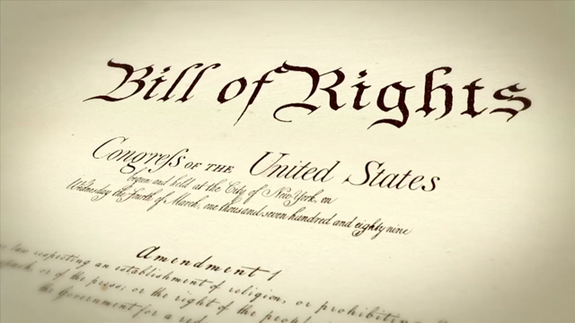 Bill of Rights
Congreſs OF THE United States
begun and held at the City of New York, on
Wednesday the fourth of March, one thousand seven hundred and eighty nine
Amendment 1
law respecting an establishment of religion, or prohibiting
or of the press; or the right of the peop
the Government for a red